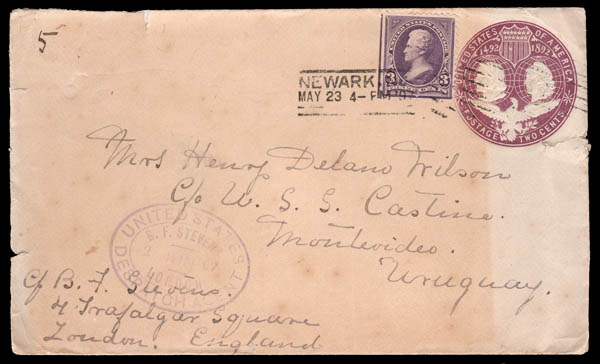 5
UNITED STATES OF AMERICA
1492 1892
POSTAGE TWO CENTS
3 3
NEWARK
MAY 23 4-PM
Mrs Henry Delano Wilson
C/o U. S. S. Castine.
Montevideo.
Uruguay.
UNITED STATES
B. F. STEVENS
c/o B. F. Stevens.
4 Trafalgar Square
London. England